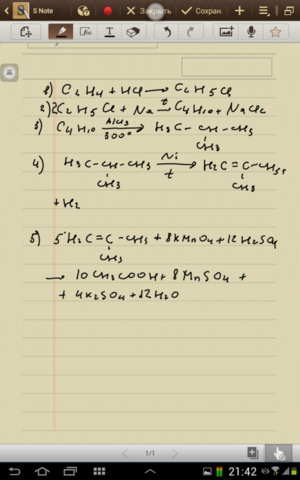 S Note
Закрыть
Сохран.
1) C2H4 + HCl → C2H5Cl
2) 2C2H5Cl + Na →t C4H10 + NaCl
3) C4H10 →AlCl3 300° H3C – CH – CH3
CH3
4) H3C – CH – CH3 →Ni t H2C = C – CH3
CH3 CH3
+ H2
5) 5 H2C = C – CH3 + 8KMnO4 + 12H2SO4
CH3
→ 10CH3COOH + 8MnSO4 +
+ 4K2SO4 + 12H2O
1/1
21:42